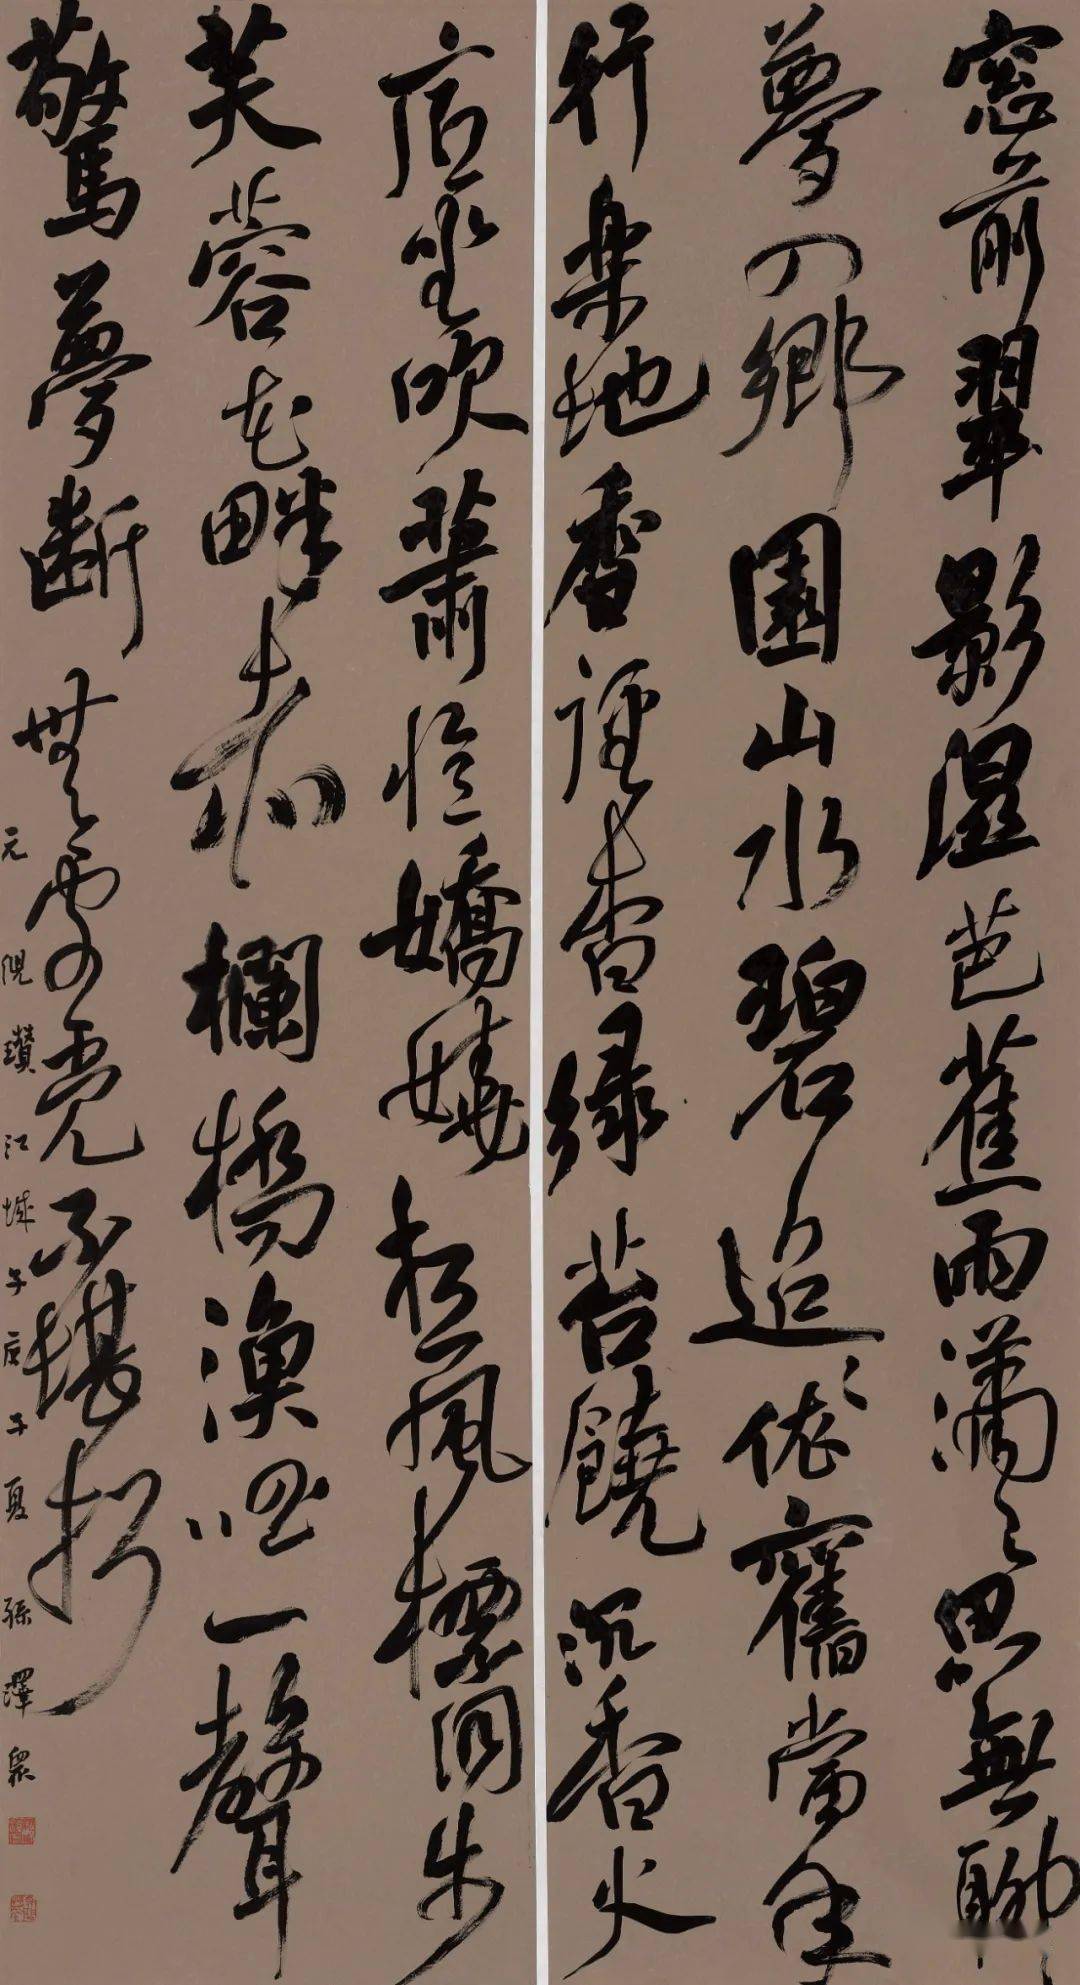 窓前翠影湿芭蕉雨瀟〻思無聊
夢入鄉園山水碧迢〻依舊當年
行樂地香徑杳綠苔饒沉香火
底坐吹簫憶嬌嬈想風標同步
芙蓉花畔赤欄橋漁唱一聲
驚夢斷無處覓不堪招
元倪瓚江城子庚子夏孫澤眾